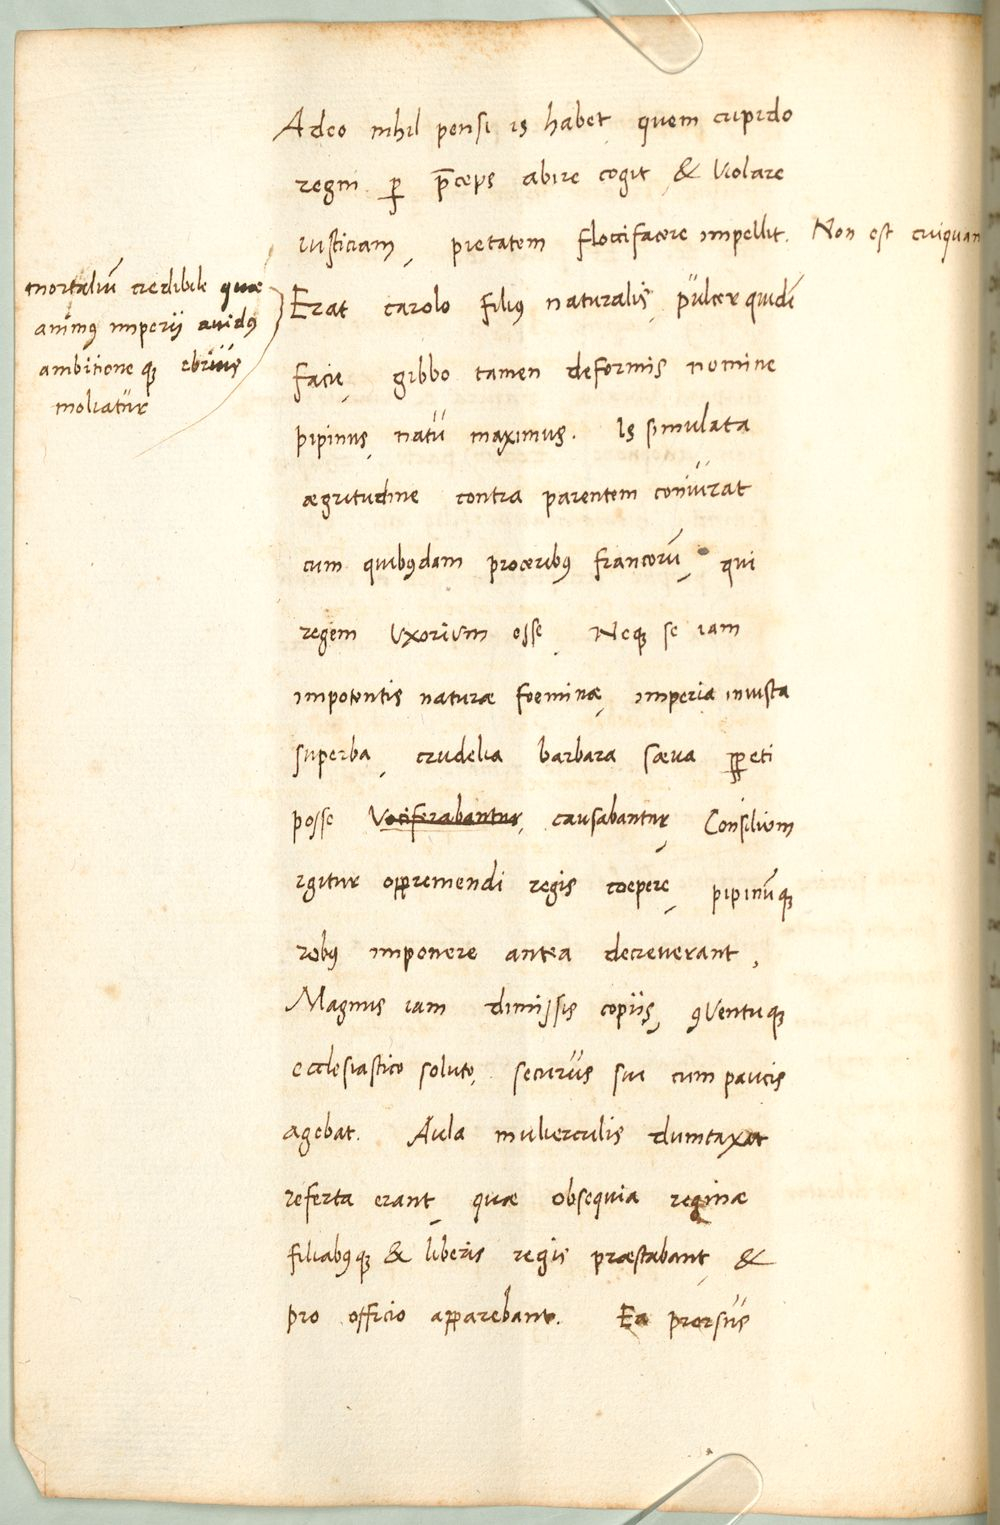 Adeo nihil pensi is habet quem cupido
regni per p̄ceps abire cogit & violare
iusticiam, pietatem floccifacere impellit. Non est cuiquam
mortaliū credibile quae
animꝰ imperii auidꝰ
ambitioneqꝫ ebrius
moliatur
Erat carolo filiꝰ naturalis, pulcer quidē
facie, gibbo tamen deformis nomine
pipinus, natu maximus. Is simulata
aegritudine contra parentem coniurat
cum quibꝰdam proceribꝰ francorū, qui
regem uxorium esse, Neqꝫ se iam
impotentis naturae foeminae, imperia iniusta
superba, crudelia barbara saeua ꝑpeti
posse Vociferabantur, causabantur, Consilium
igitur opprimendi regis coepere, pipinūqꝫ
rebꝰ imponere antea decreuerant,
Magnus iam dimissis copiis, ꝯVentuqꝫ
ecclesiastico soluto, securus sui cum paucis
agebat. Aula mulierculis dumtaxat
referta erant, quae obsequia reginae
filiabꝰqꝫ & liberis regis praestabant, &
pro officio apparebant. Ea prorsus